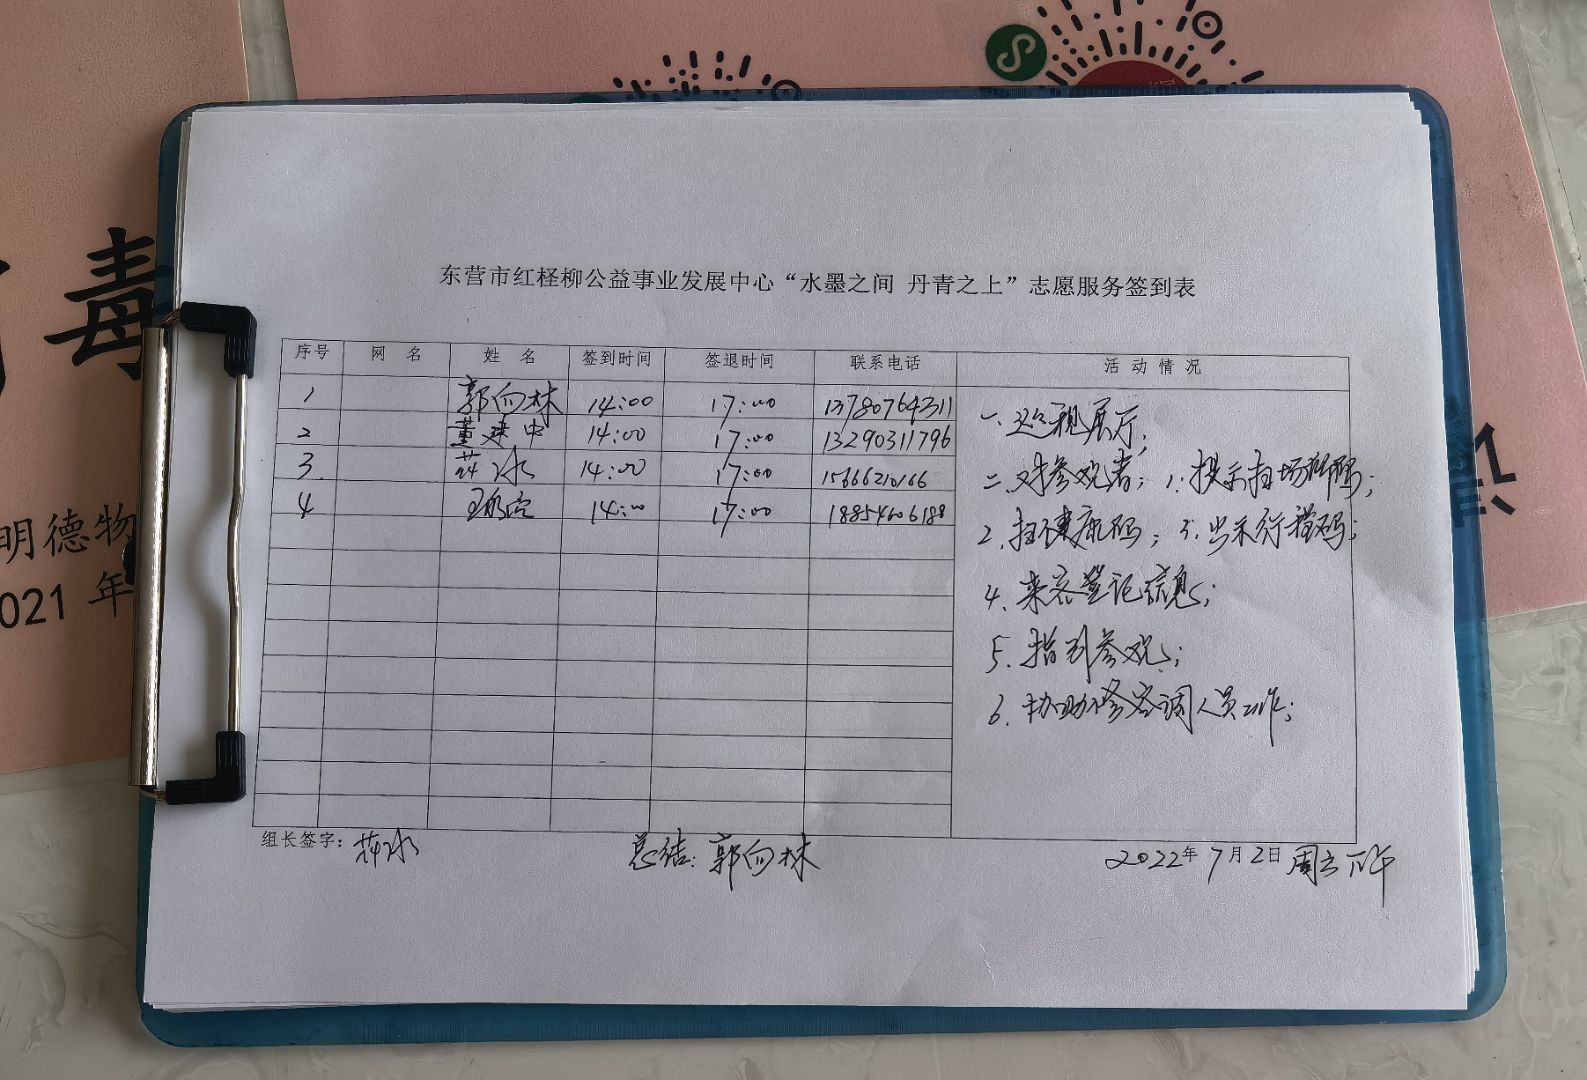 毒
明德物
021 年
东营市红柽柳公益事业发展中心“水墨之间 丹青之上”志愿服务签到表
序号 网 名 姓 名 签到时间 签退时间 联系电话 活 动 情 况
1 郭向林 14:00 17:00 13780764311
2 董建中 14:00 17:00 13290311796
3. 冰 14:00 17:00 15666210166
4 14:00 17:00 18854606188
一、巡视展厅;
二、对参观者; 1. 提示扫场所码;
2. 扫健康码; 3. 出示行程码;
4. 来客登记信息;
5. 指引参观;
6. 协助 人员工作;
组长签字: 冰 总结: 郭向林 2022年7月2日 周六 下午